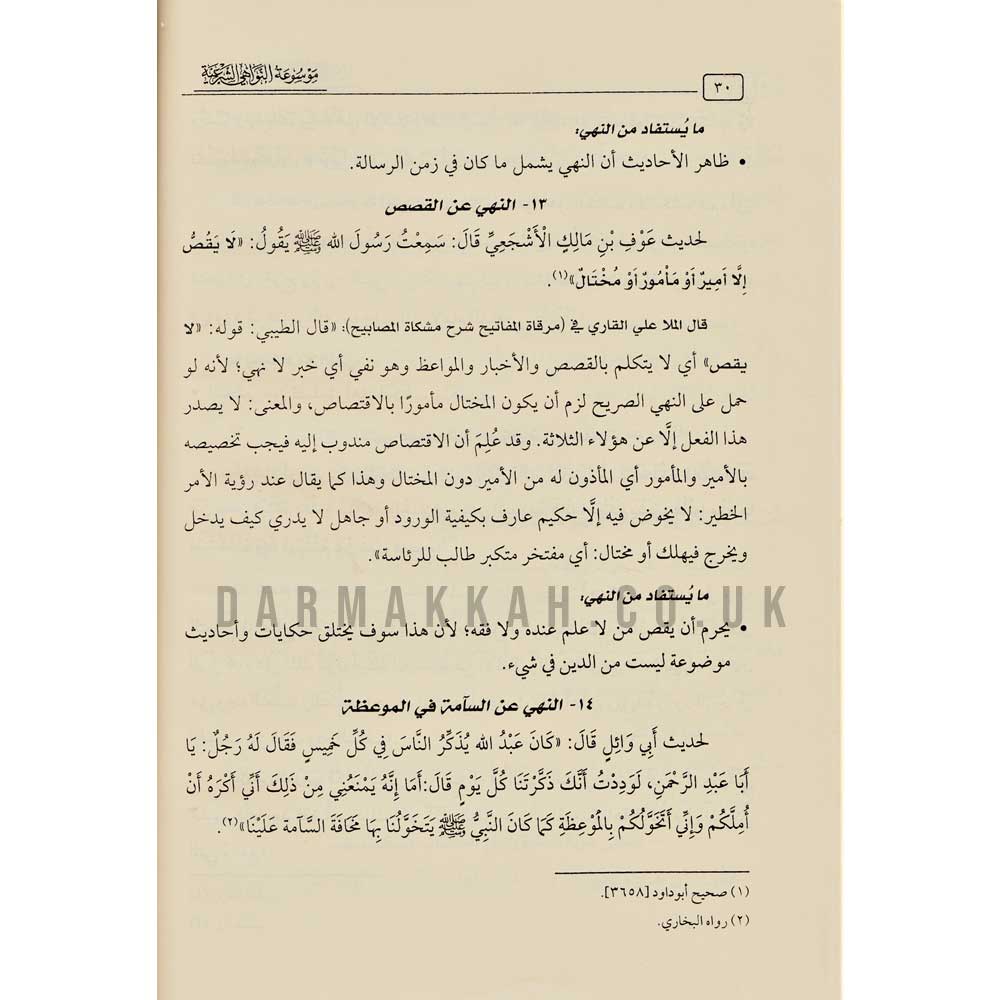 موسوعة النواهي الشرعية
٣٠
ما يُستفاد من النهي:
• ظاهر الأحاديث أن النهي يشمل ما كان في زمن الرسالة.
١٣- النهي عن القصص
لحديث عَوْفِ بْنِ مَالِكٍ الْأَشْجَعِيِّ قَالَ: سَمِعْتُ رَسُولَ الله ﷺ يَقُولُ: «لَا يَقُصُّ
إِلَّا أَمِيرٌ أَوْ مَأْمُورٌ أَوْ مُخْتَالٌ»(١).
قال الملا علي القاري في (مرقاة المفاتيح شرح مشكاة المصابيح): «قال الطيبي: قوله: «لا
يقص» أي لا يتكلم بالقصص والأخبار والمواعظ وهو نفي أي خبر لا نهي؛ لأنه لو
حمل على النهي الصريح لزم أن يكون المختال مأمورًا بالاقتصاص، والمعنى: لا يصدر
هذا الفعل إلَّا عن هؤلاء الثلاثة. وقد عُلِمَ أن الاقتصاص مندوب إليه فيجب تخصيصه
بالأمير والمأمور أي المأذون له من الأمير دون المختال وهذا كما يقال عند رؤية الأمر
الخطير: لا يخوض فيه إلَّا حكيم عارف بكيفية الورود أو جاهل لا يدري كيف يدخل
ويخرج فيهلك أو مختال: أي مفتخر متكبر طالب للرئاسة».
DARMAKKAH.CO.UK
ما يُستفاد من النهي:
• يحرم أن يقص من لا علم عنده ولا فقه؛ لأن هذا سوف يختلق حكايات وأحاديث
موضوعة ليست من الدين في شيء.
١٤- النهي عن السآمة في الموعظة
لحديث أَبِي وَائِلٍ قَالَ: «كَانَ عَبْدُ الله يُذَكِّرُ النَّاسَ فِي كُلِّ خَمِيسٍ فَقَالَ لَهُ رَجُلٌ: يَا
أَبَا عَبْدِ الرَّحْمَنِ، لَوَدِدْتُ أَنَّكَ ذَكَّرْتَنَا كُلَّ يَوْمٍ قَالَ:أَمَا إِنَّهُ يَمْنَعُنِي مِنْ ذَلِكَ أَنِّي أَكْرَهُ أَنْ
أُمِلَّكُمْ وَإِنِّي أَتَخَوَّلُكُمْ بِالْمَوْعِظَةِ كَمَا كَانَ النَّبِيُّ ﷺ يَتَخَوَّلُنَا بِهَا مَخَافَةَ السَّآمة عَلَيْنَا»(٢).
(١) صحيح أبوداود [٣٦٥٨].
(٢) رواه البخاري.